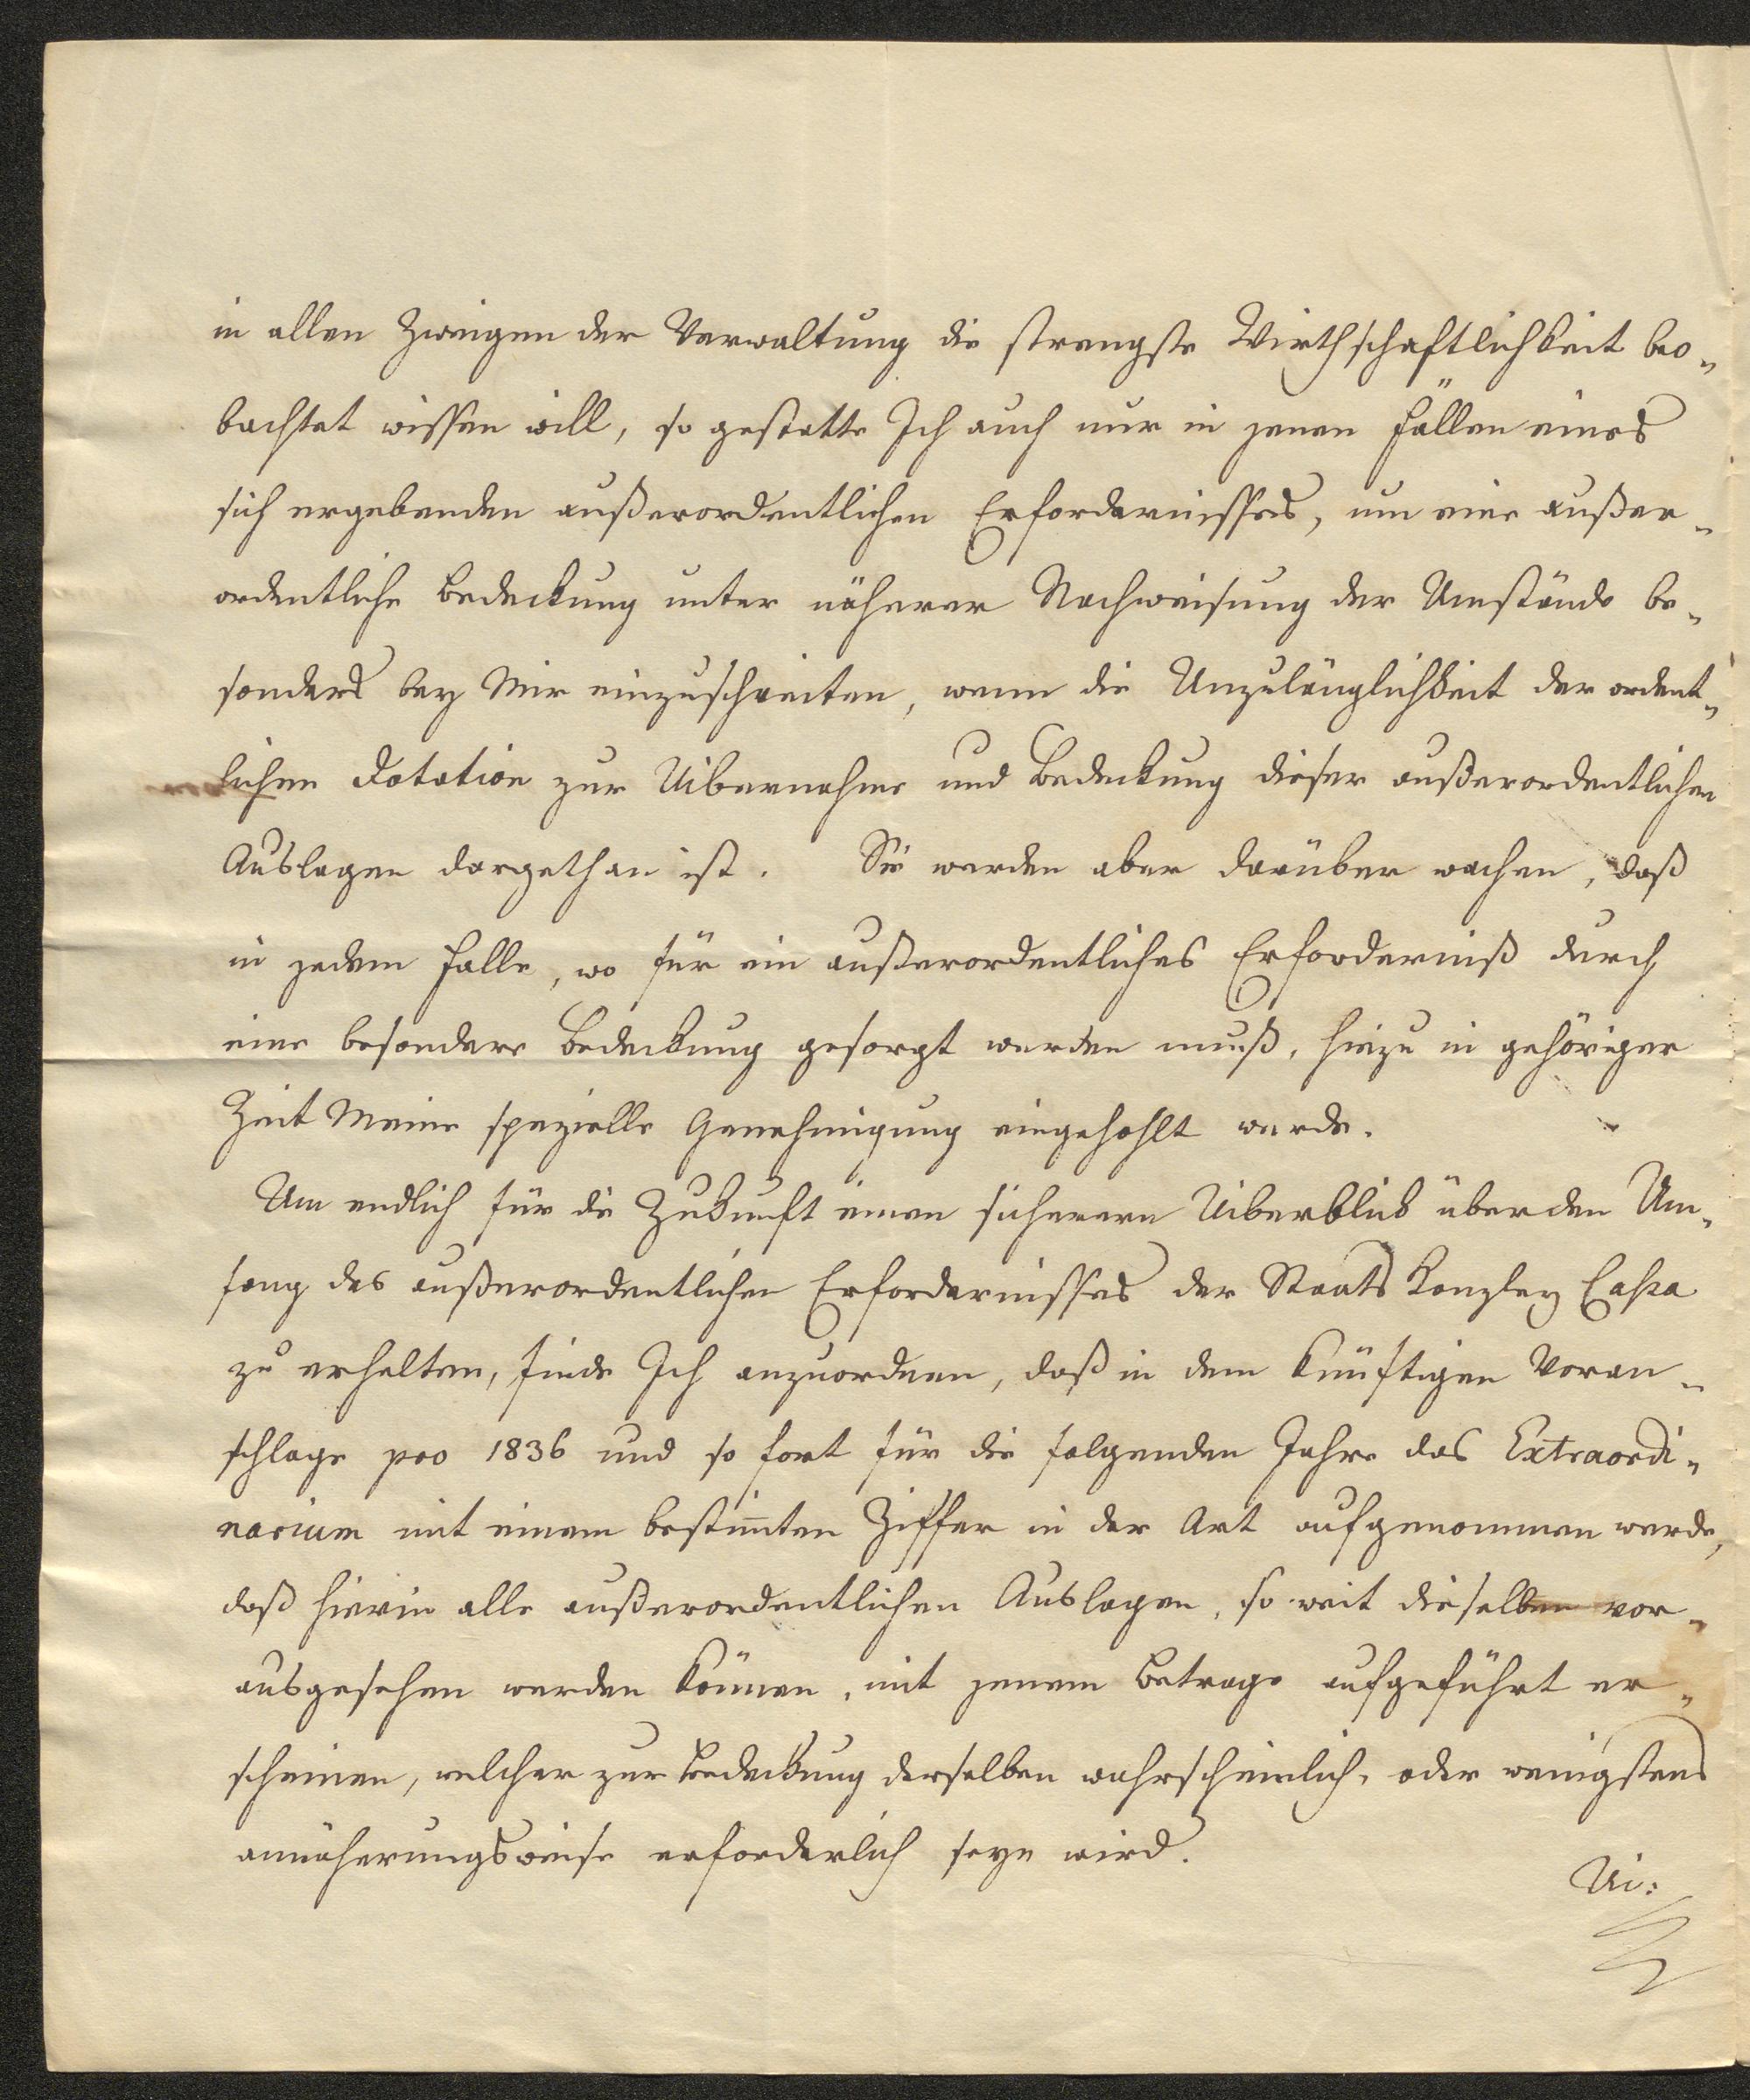 in allen Zweigen der Verwaltung die strengste Wirthschaftlichkeit beo„
bachtet wissen will, so gestatte Ich auch nur in jenen Fällen eines
sich ergebenden außerordentlichen Erfordernisses, um eine außer„
ordentliche Bedeckung unter näherer Nachweisung der Umstände be„
sonders bey Mir einzuschreiten, wenn die Unzulänglichkeit der ordent„
lichen Dotation zur Uibernahme und Bedeckung dieser außerordentlichen
Auslagen dargethan ist. Sie werden aber darüber wachen, daß
in jedem Falle, wo für ein außerordentliches Erforderniß durch
eine besondere Bedeckung gesorgt werden muß, hiezu in gehöriger
Zeit Meine spezielle Genehmigung eingehohlt werde.
Um endlich für die Zukunft einen sicherern Uiberblick über den Um„
fang des außerordentlichen Erfordernisses der Staats Kanzley Cassa
zu erhalten, finde Ich anzuordnen, daß in dem künftigen Voran„
schlage pro 1836 und so fort für die folgenden Jahre das Extraordi„
narium mit einem bestim̄ten Ziffer in der Art aufgenommen werde,
daß hierin alle außerordentlichen Auslagen, so weit dieselben vor„
ausgesehen werden können, mit jenem Betrage aufgeführt er„
scheinen, welcher zur Bedeckung derselben wahrscheinlich, oder wenigstens
annäherungsweise erforderlich seyn wird.
Ui: